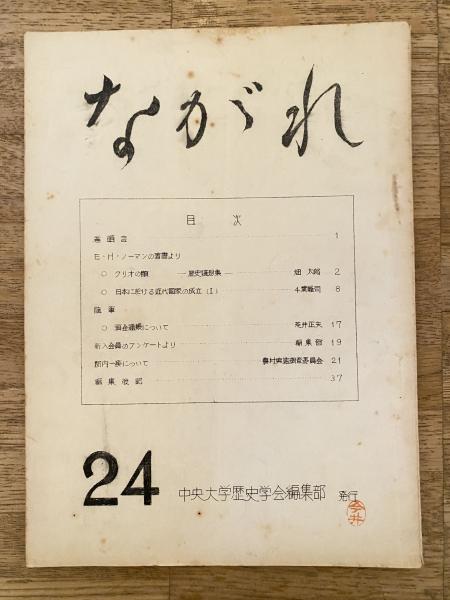 ながれ
目次
巻頭言 1
E・H・ノーマンの著書より
○ クリオの顔 ―歴史随想集― 畑 太郎 2
○ 日本に於ける近代国家の成立 (I) 8
随筆
○ について 荒井正夫 17
新入会員のアンケートより 編集部 19
について 農村実態調査委員会 21
編集後記 37
24 中央大学歴史学会編集部 発行
今井